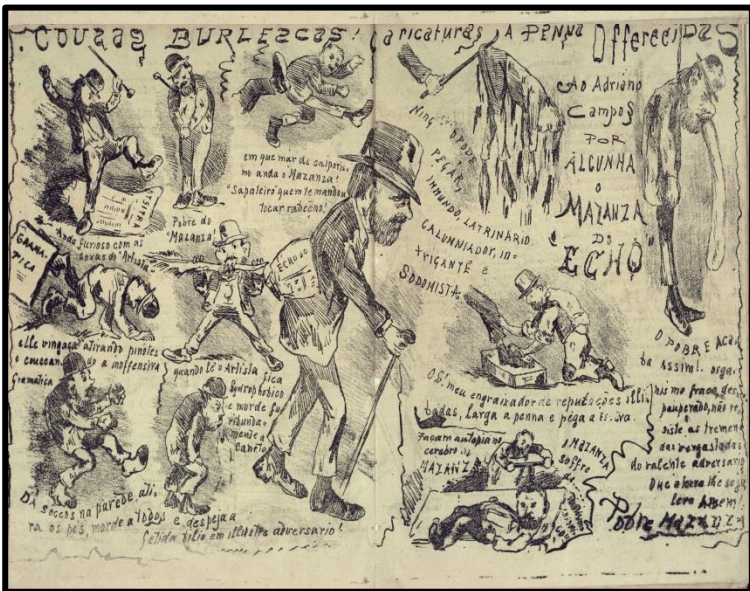 COUSAS BURLESCAS!
Caricaturas A PENNA Offerecidas
Ao Adriano
Campos
POR
ALCUNHA
O
MAZANZA
DO
"ECHO"
em que mar de caiporis-
mo anda o Mazanza!
"Sapateiro quem te mandou
tocar rabecão!
Pobre do
Mazanza
Anda furioso com as
do "Artista"
GRAMA-
TICA
elle vingaça atirando pinotes
e couceando a inoffensiva
Gramatica
quando lê o Artista fica
hydrophobico
e morde fu-
ribunda-
mente a
caneta
ECHO DO
Dá soccos na parede, ati-
ra os pés, morde a todos e despeja a
fetida bilis em illustre adversario!
PODE
PEGAR,
IMMUNDO, LATRINARIO
CALUMNIADOR, IN-
TRIGANTE e
SODOMISTA
O Sr. meu engraixador de reputações illi-
badas, larga a penna e pega a
Façam autopsia no
cerebro do
MAZANZA
O MAZANZA
soffre
O POBRE ACA-
BA ASSIM!. orga-
nismo fraco, des-
pauperado, não re-
siste as tremen-
das vergastadas
do valente adversario
Que a terra lhe seja
leve
Pobre Mazanza